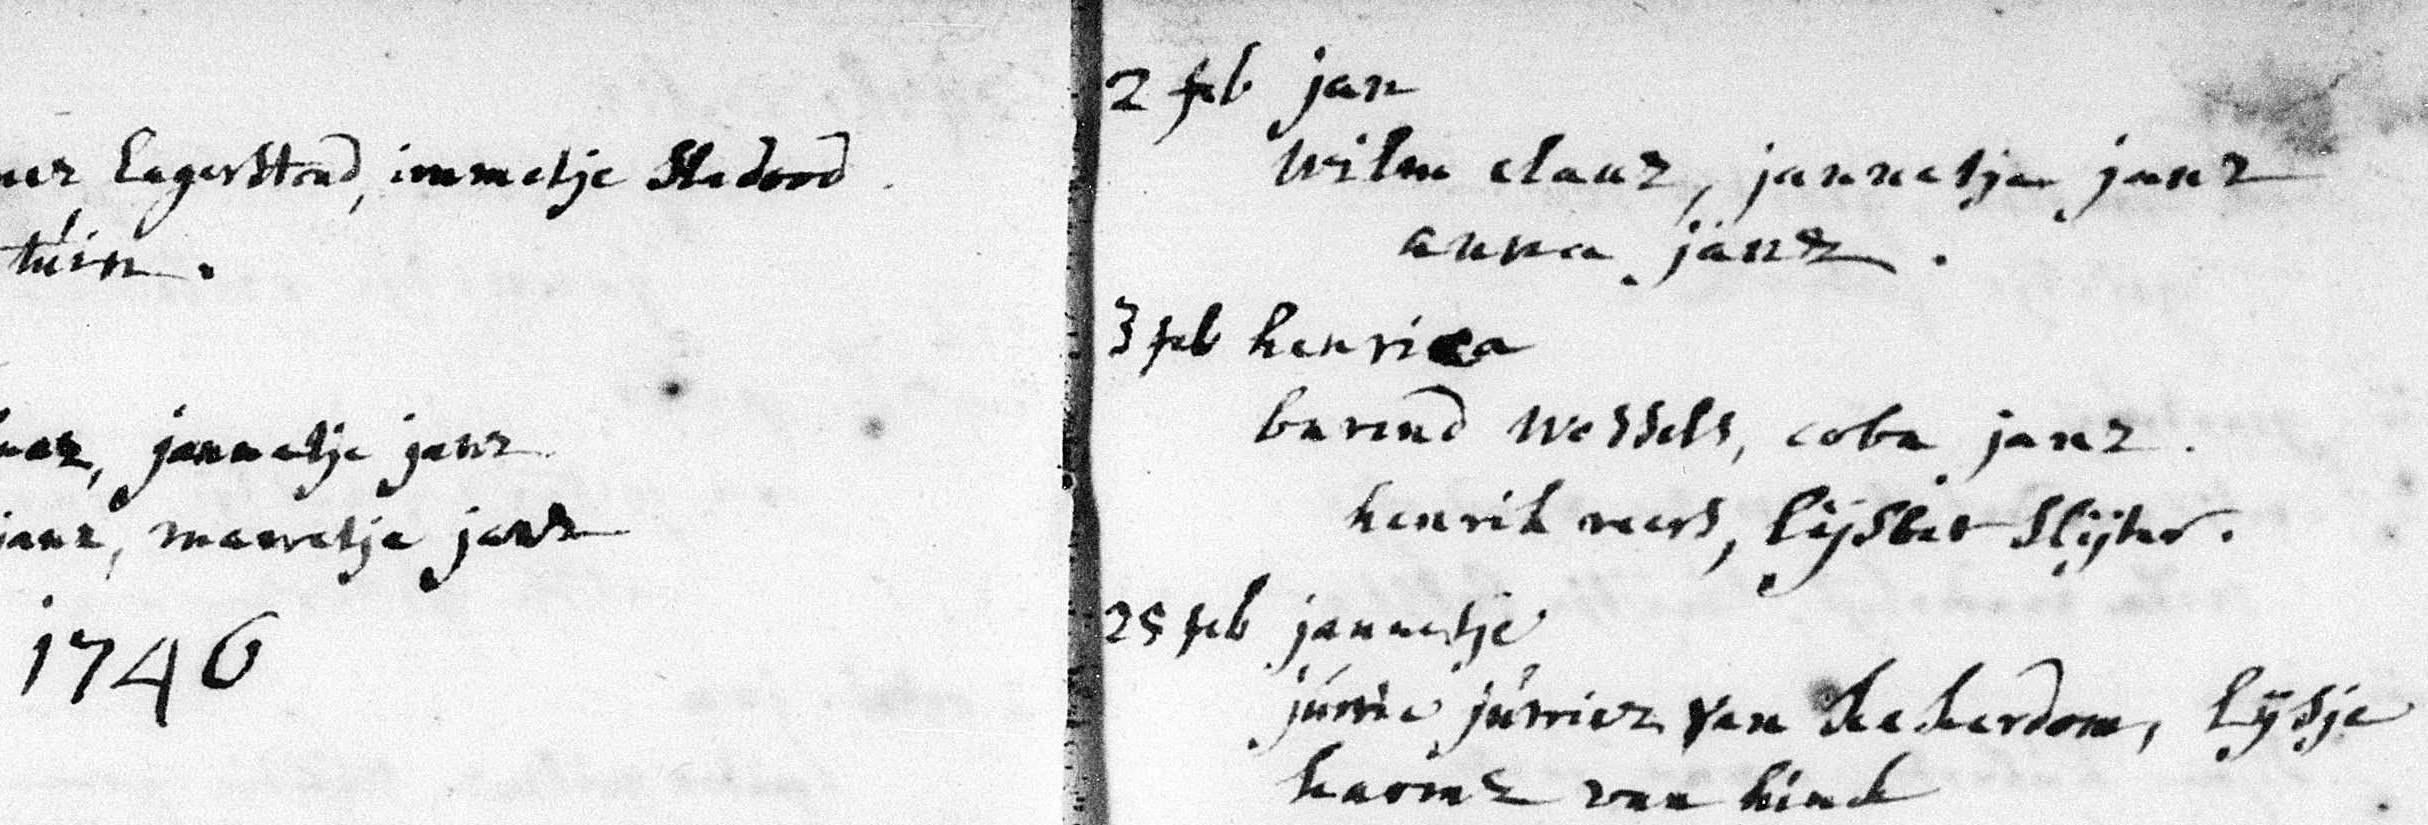 Lagerstond, immetje
tuin.
jannetje janz
janz, mannetje janz
1746
2 feb jan
wilm claaz, jannetje janz
anna janz.
3 feb henrica
barend wessels, coba janz.
henrik meers, lijsbet slijter.
25 feb jannetje
jurrie jurriez van kekerdom, lijsje
harmz van hink